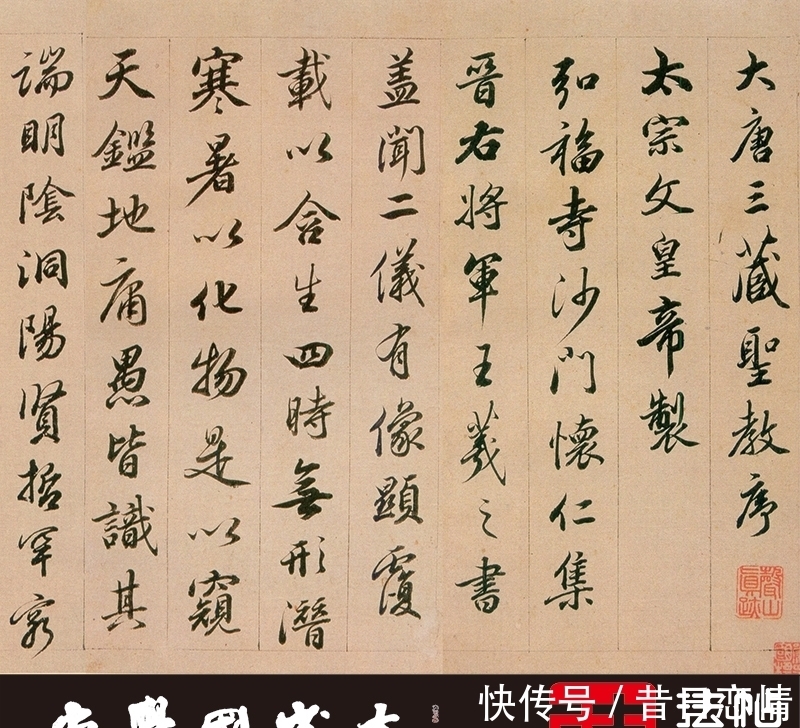 大唐三藏聖教序
太宗文皇帝製
弘福寺沙門懷仁集
晉右將軍王羲之書
盖聞二儀有像顯覆
載以含生四時無形潛
寒暑以化物是以窺
天鑑地庸愚皆識其
端明陰洞陽賢哲罕窮
快传号 / 昔日恋情